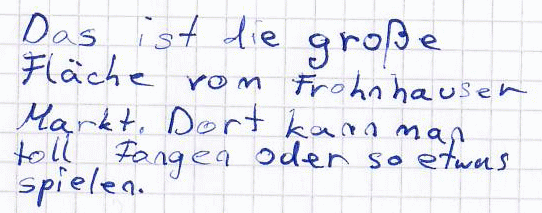 Das ist die große
Fläche vom Frohnhauser
Markt. Dort kann man
toll Fangen oder so etwas
spielen.